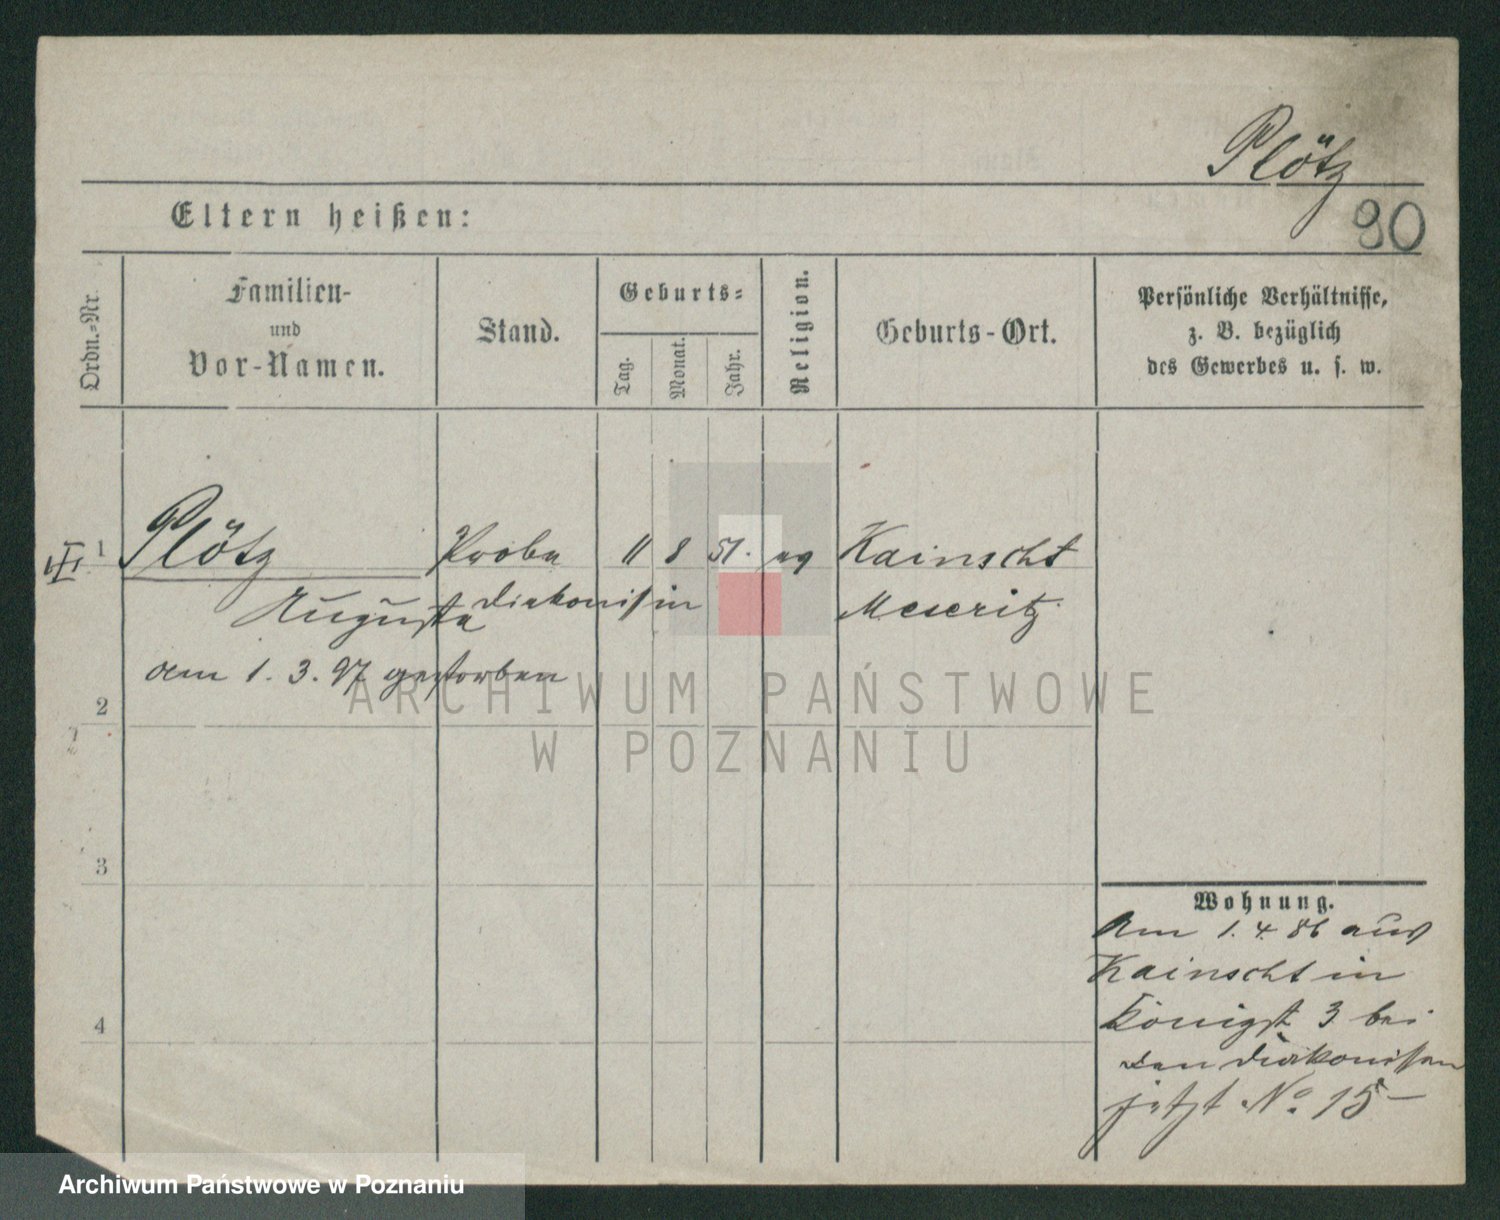 Plötz
Eltern heißen:
90
Ordn.-Nr.
Familien-
und
Vor-Namen.
Stand.
Geburts-
Tag.
Monat.
Jahr.
Religion.
Geburts-Ort.
Persönliche Verhältnisse,
z. B. bezüglich
des Gewerbes u. s. w.
III 1 Plötz Probe 11 8 51. ev Kainscht
Auguste diakonissin Meseritz
am 1. 3. 97 gestorben
2
3
4
Wohnung.
Am 1. 4. 86 aus
Kainscht in
Königst 3 bei
den Diakonissen
jetzt No. 15
ARCHIWUM PAŃSTWOWE
W POZNANIU
Archiwum Państwowe w Poznaniu